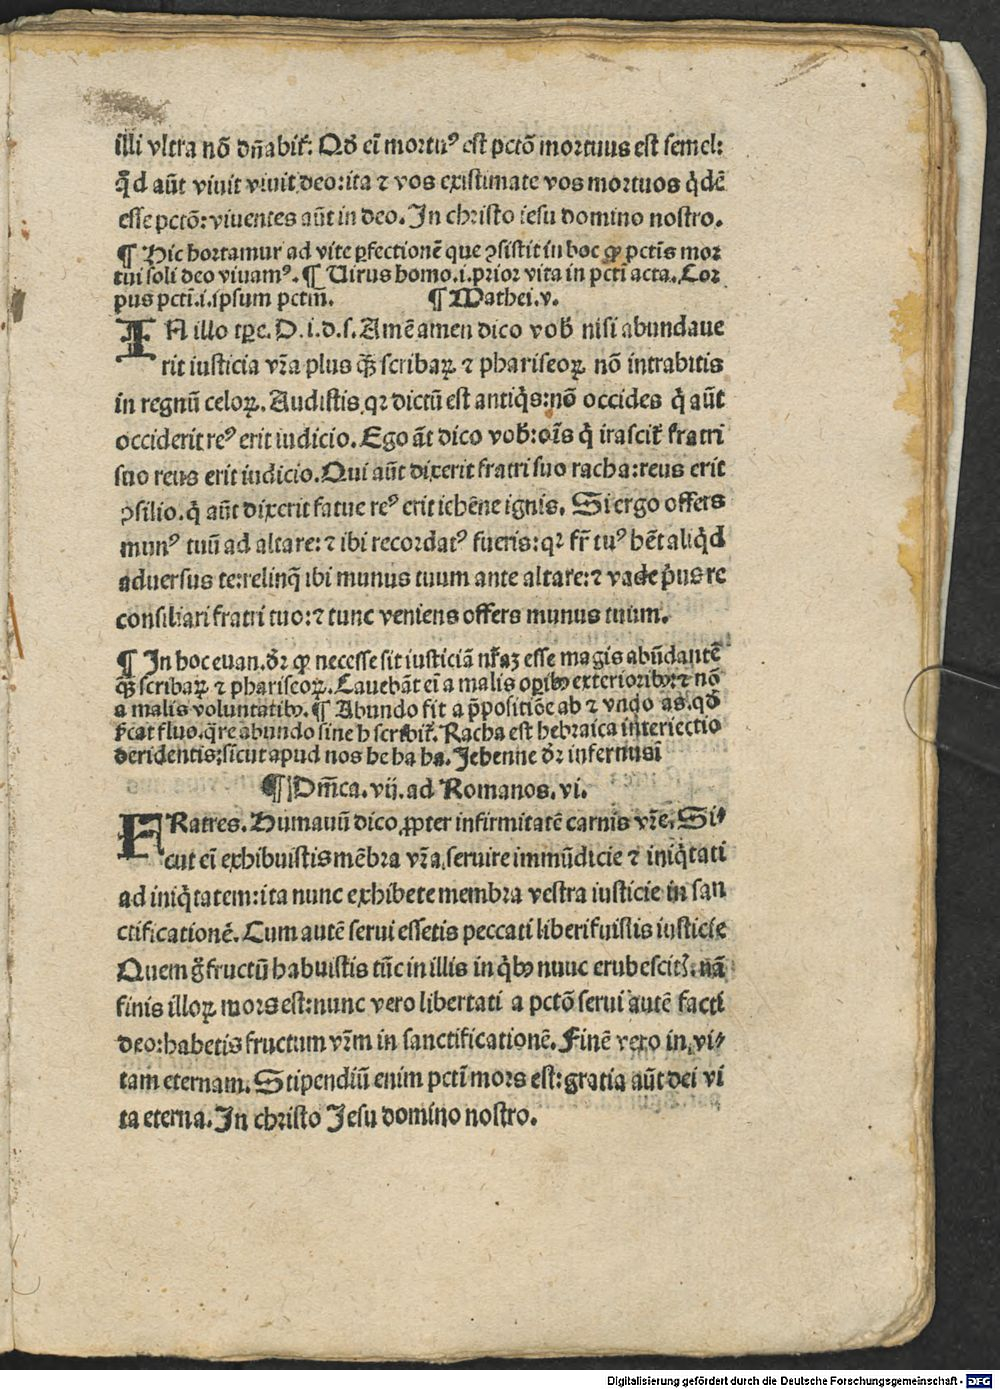 illi vltra nō dn̄abit᷑: Qd̕ ei᷑ mortuꝰ est pctō mortuus est semel:
qd̕ aūt viuit viuit deo:ita ⁊ vos existimate vos mortuos qͥdē
esse pctō: viuentes aūt in deo. In christo iesu domino nostro.
¶ Hic hortamur ad vite ꝑfectionē que ꝯsistit in hoc ꝙ pctīs mor
tui soli deo viuamꝰ. ¶ Uirus homo .i. prior vita in pcti acta. Cor
pus pcti .i. ipsum pctm̄. ¶ Mathei. v.
IN illo tꝑe. D. i. d. s. Amē amen dico vob̕ nisi abundaue
rit iusticia vr̄a plus qꝫ scribaꝝ ⁊ phariseoꝝ nō intrabitis
in regnū celoꝝ. Audistis qꝛ dictū est antiqͥs: nō occides qͥ aūt
occiderit reꝰ erit iudicio. Ego āt dico vob̕: oīs qͥ irascit᷑ fratri
suo reus erit iudicio. Qui aūt dixerit fratri suo racha: reus erit
ꝯsilio. qͥ aūt dixerit fatue reꝰ erit iehēne ignis. Si ergo offers
munꝰ tuū ad altare: ⁊ ibi recordatꝰ fueris: qꝛ fr̄ tuꝰ hēt aliqͥd
aduersus te: relinqͣ ibi munus tuum ante altare: ⁊ vade pͥus re
consiliari fratri tuo: ⁊ tunc veniens offers munus tuum.
¶ In hoc euan. dr̄ ꝙ necesse sit iusticiā nr̄aꝫ esse magis abūdantē
qꝫ scribaꝝ ⁊ phariseoꝝ. Cauebāt ei᷑ a malis oꝑibꝰ exterioribꝰ: ⁊ nō
a malis voluntatibꝰ. ¶ Abundo fit a p̄positiōe ab ⁊ vndo as. qd̕
fͥcat fluo. qͣre abundo sine h scribit᷑. Racha est hebraica interiectio
deridentis: sicut apud nos he ha ha. Jehenne dr̄ infernusi
¶ Dm̄ca. vij. ad Romanos. vi.
FRatres. Humanū dico ꝓpter infirmitatē carnis vr̄e. Si⸗
cut ei᷑ exhibuistis mēbra vr̄a seruire immūdicie ⁊ iniqͥtati
ad iniqͥtatem: ita nunc exhibete membra vestra iusticie in san
ctificationē. Cum autē serui essetis peccati liberi fuistis iusticie
Quem gͦ fructū habuistis tūc in illis in qͥbꝰ nunc erubescitꝭ: nā
finis illoꝝ mors est: nunc vero libertati a pctō serui autē facti
deo: habetis fructum vr̄m in sanctificationē. Finē vero in vi⸗
tam eternam. Stipendiū enim pcti mors est: gratia aūt dei vi
ta eterna. In christo Jesu domino nostro.
Digitalisierung gefördert durch die Deutsche Forschungsgemeinschaft - DFG